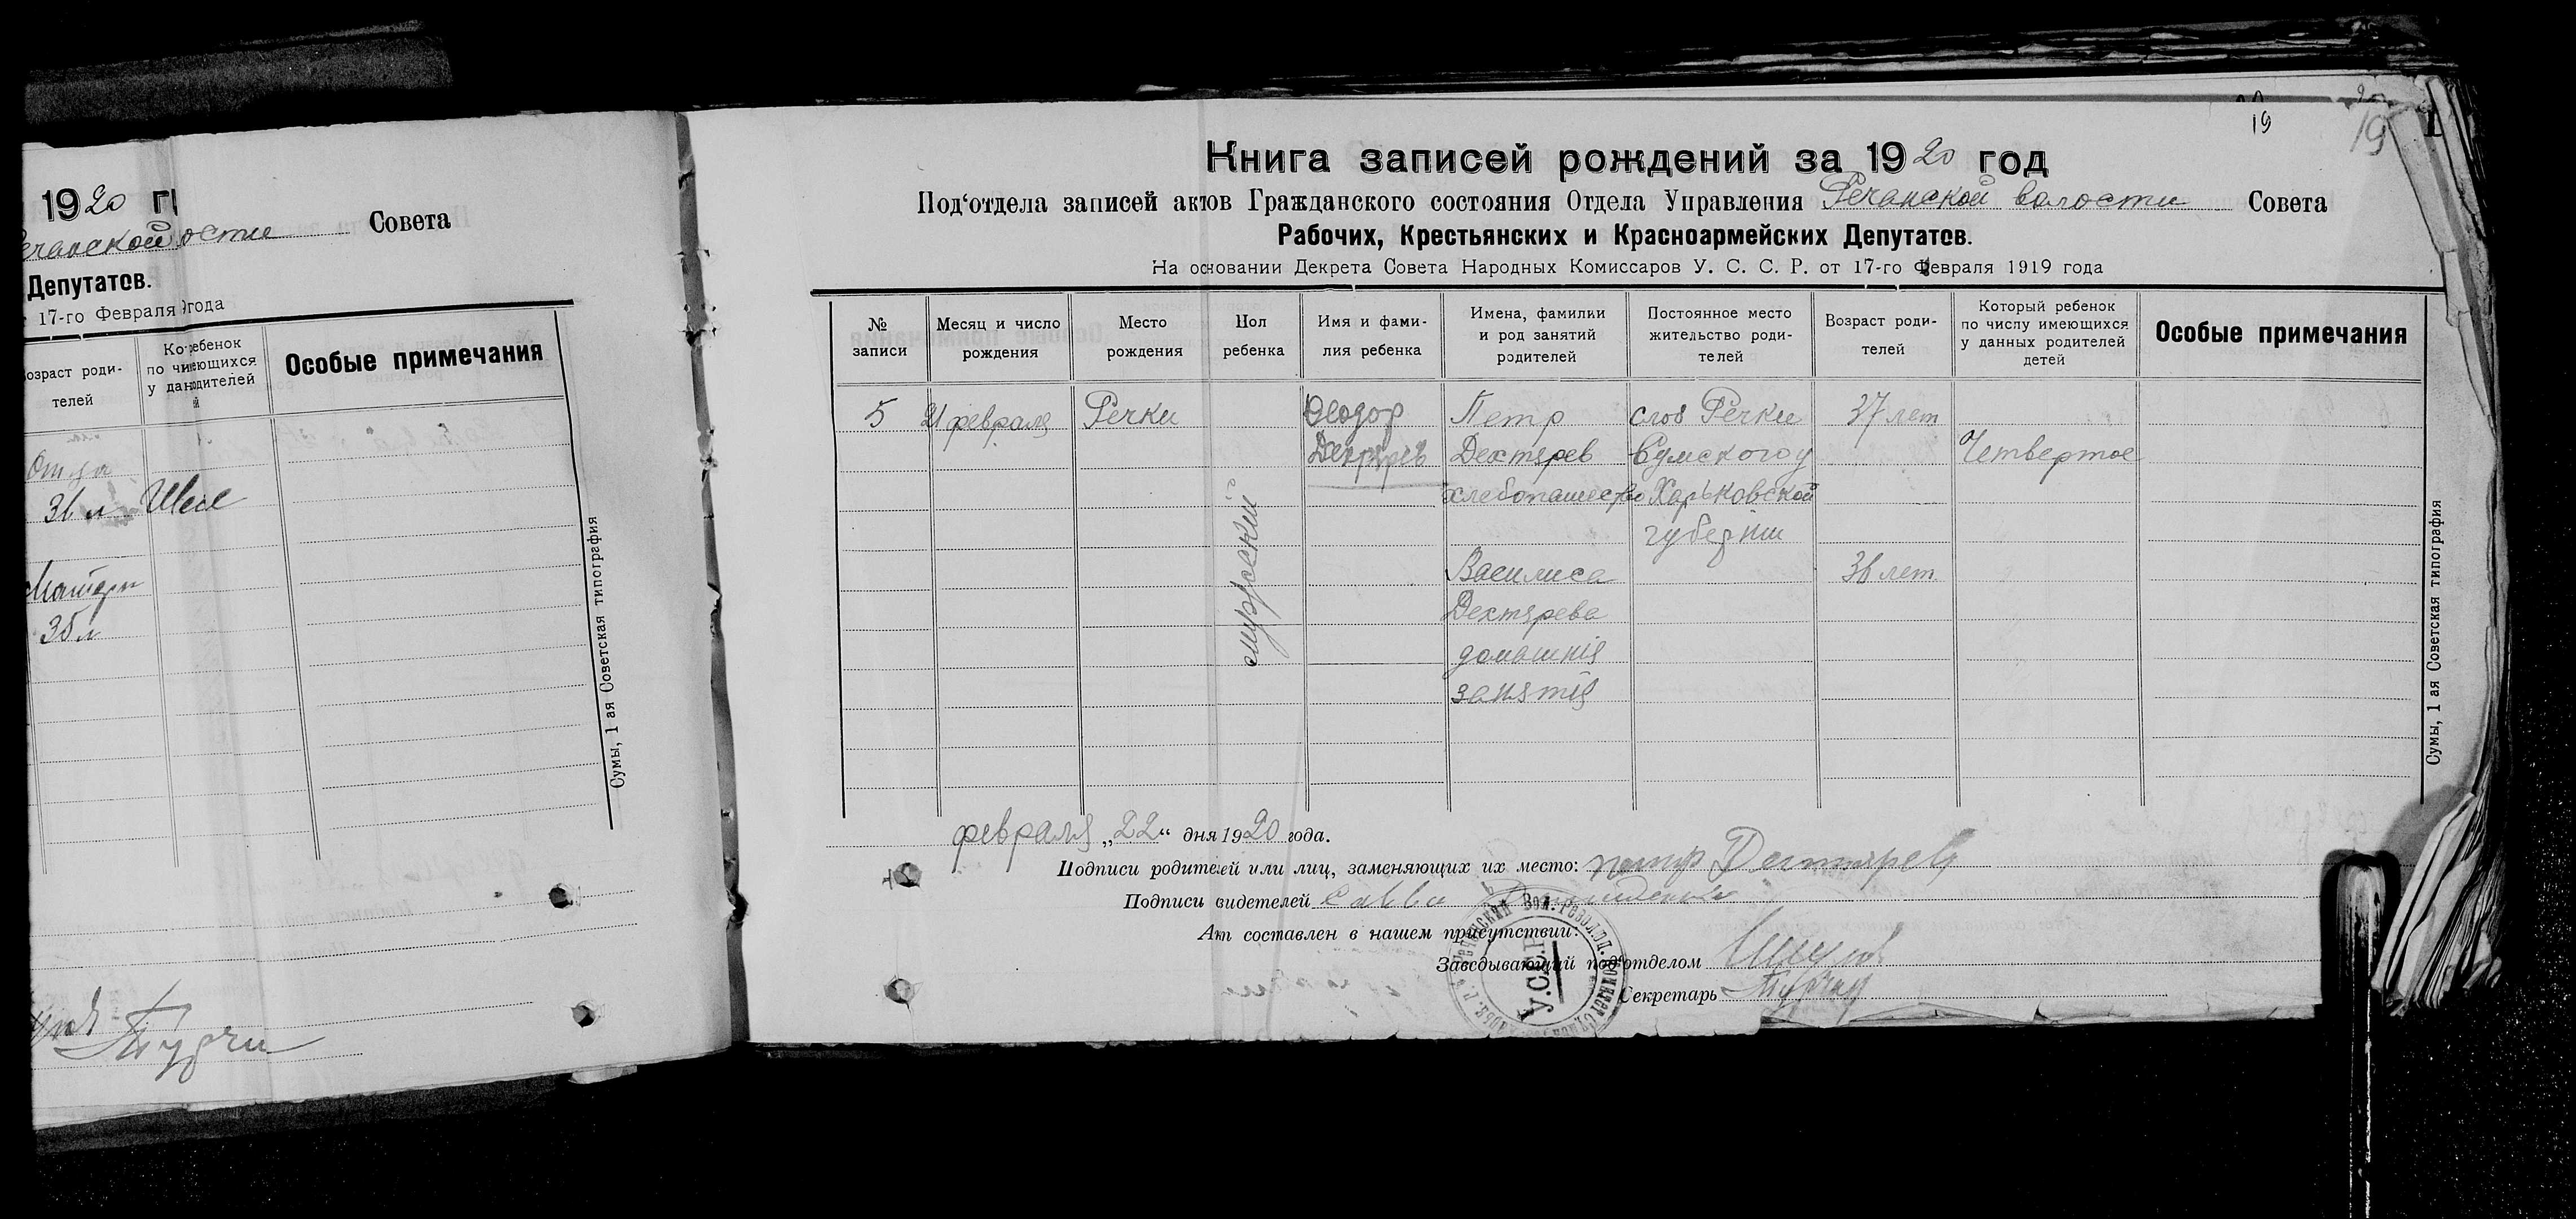 1920
Речанской
Совета
Депутатов.
17-го Февраля
года
Возраст роди-
телей
Особые примечания
Отца
36 л
Матери
35 л
Сумы, 1 ая Советская типография
19
19
Книга записей рождений за 1920 год
Под‘отдела записей актов Гражданского состояния Отдела Управления Речанской волости Совета
Рабочих, Крестьянских и Красноармейских Депутатов.
На основании Декрета Совета Народных Комиссаров У. С. С. Р. от 17-го Февраля 1919 года
№ записи
Месяц и число рождения
Место рождения
Пол ребенка
Имя и фами-
лия ребенка
Имена, фамилии
и род занятий
родителей
Постоянное место
жительство роди-
телей
Возраст роди-
телей
Который ребенок
по числу имеющихся
у данных родителей
детей
Особые примечания
5 21 февраля Речки Феодор Петр слоб Речки 37 лет
Дехтярев Дехтярев Сумского у Четвертое
хлебопашество Харьковской
губернии
мужской
Василиса 36 лет
Дехтярева
домашнія
занятія
Сумы, 1 ая Советская типография
февраля „22“ дня 1920 года.
Подписи родителей или лиц, заменяющих их место: петр Дегтярев
Подписи видетелей Савва
Акт составлен в нашем присутствии:
Заведывающий под‘отделом
Секретарь
У.С.С.Р.